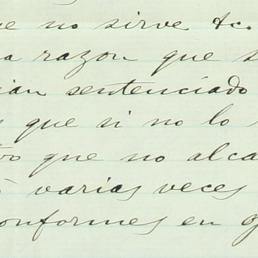 ue no sirve &c.
a razon que s
ian sentenciado
s que si no lo
tro que no alca
ò varias veces
onformes en q